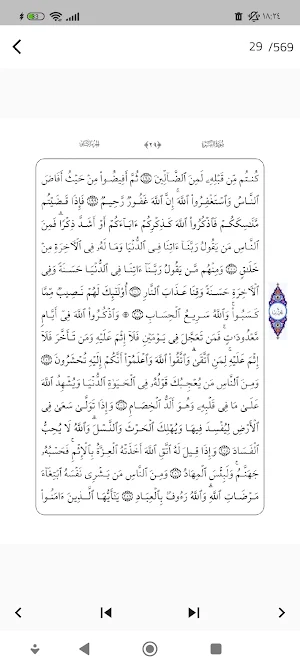 ١٨:٢٤
29 /569
﴿٢٩﴾
كُنتُم مِّن قَبْلِهِۦ لَمِنَ ٱلضَّآلِّينَ ثُمَّ أَفِيضُوا۟ مِنْ حَيْثُ أَفَاضَ
ٱلنَّاسُ وَٱسْتَغْفِرُوا۟ ٱللَّهَ إِنَّ ٱللَّهَ غَفُورٌ رَّحِيمٌ فَإِذَا قَضَيْتُم
مَّنَٰسِكَكُمْ فَٱذْكُرُوا۟ ٱللَّهَ كَذِكْرِكُمْ ءَابَآءَكُمْ أَوْ أَشَدَّ ذِكْرًا فَمِنَ
ٱلنَّاسِ مَن يَقُولُ رَبَّنَآ ءَاتِنَا فِى ٱلدُّنْيَا وَمَا لَهُۥ فِى ٱلْءَاخِرَةِ مِنْ
خَلَٰقٍ وَمِنْهُم مَّن يَقُولُ رَبَّنَآ ءَاتِنَا فِى ٱلدُّنْيَا حَسَنَةً وَفِى
ٱلْءَاخِرَةِ حَسَنَةً وَقِنَا عَذَابَ ٱلنَّارِ أُو۟لَٰٓئِكَ لَهُمْ نَصِيبٌ مِّمَّا
كَسَبُوا۟ وَٱللَّهُ سَرِيعُ ٱلْحِسَابِ ۞ وَٱذْكُرُوا۟ ٱللَّهَ فِىٓ أَيَّامٍ
مَّعْدُودَٰتٍ فَمَن تَعَجَّلَ فِى يَوْمَيْنِ فَلَآ إِثْمَ عَلَيْهِ وَمَن تَأَخَّرَ فَلَآ
إِثْمَ عَلَيْهِ لِمَنِ ٱتَّقَىٰ وَٱتَّقُوا۟ ٱللَّهَ وَٱعْلَمُوٓا۟ أَنَّكُمْ إِلَيْهِ تُحْشَرُونَ
وَمِنَ ٱلنَّاسِ مَن يُعْجِبُكَ قَوْلُهُۥ فِى ٱلْحَيَوٰةِ ٱلدُّنْيَا وَيُشْهِدُ ٱللَّهَ
عَلَىٰ مَا فِى قَلْبِهِۦ وَهُوَ أَلَدُّ ٱلْخِصَامِ وَإِذَا تَوَلَّىٰ سَعَىٰ فِى
ٱلْأَرْضِ لِيُفْسِدَ فِيهَا وَيُهْلِكَ ٱلْحَرْثَ وَٱلنَّسْلَ وَٱللَّهُ لَا يُحِبُّ
ٱلْفَسَادَ وَإِذَا قِيلَ لَهُ ٱتَّقِ ٱللَّهَ أَخَذَتْهُ ٱلْعِزَّةُ بِٱلْإِثْمِ فَحَسْبُهُۥ
جَهَنَّمُ وَلَبِئْسَ ٱلْمِهَادُ وَمِنَ ٱلنَّاسِ مَن يَشْرِى نَفْسَهُ ٱبْتِغَآءَ
مَرْضَاتِ ٱللَّهِ وَٱللَّهُ رَءُوفٌۢ بِٱلْعِبَادِ يَٰٓأَيُّهَا ٱلَّذِينَ ءَامَنُوا۟